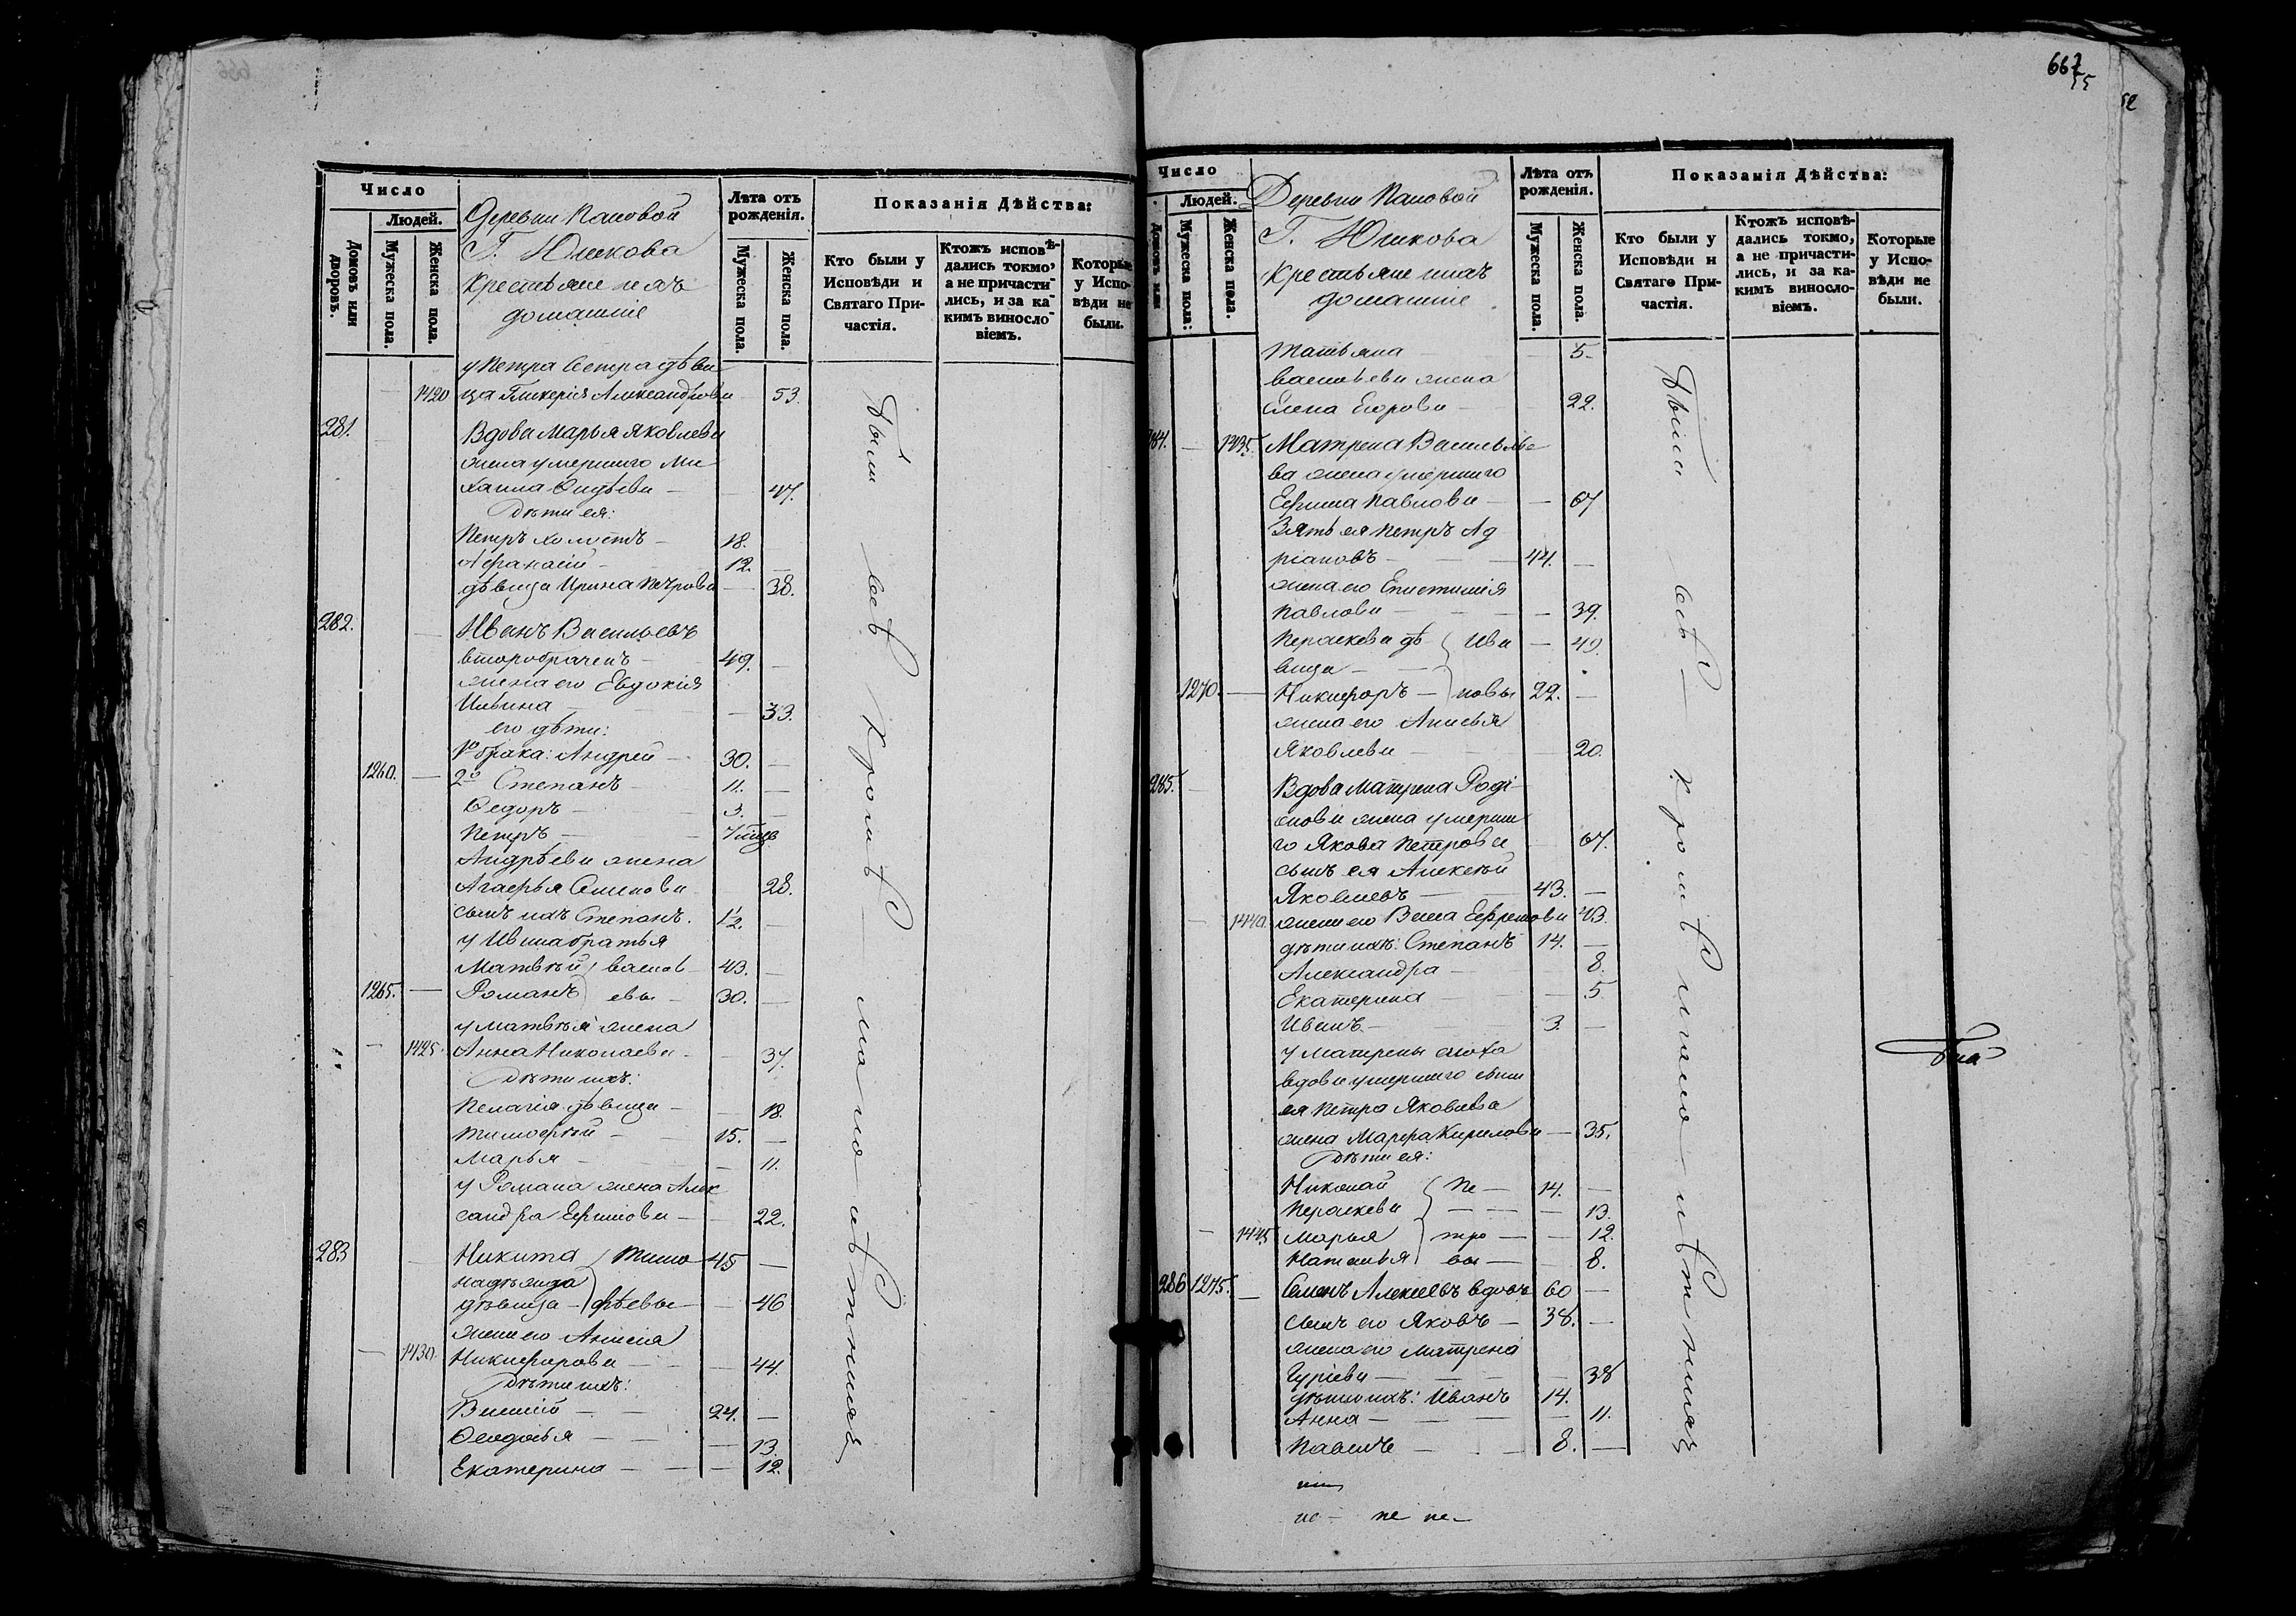 Число
Людей.
Домовъ или дворовъ.
Мужеска пола.
Женска пола.
Деревни Пановой
Г. Юшкова
крестьяне и ихъ
домашніе
Лѣта отъ рожденія.
Мужеска пола.
Женска пола.
Показанія Дѣйства:
Кто были у Исповѣди и Святаго Причастія.
Ктожъ исповѣдались токмо, а не причастились, и за какимъ винословіемъ.
Которые у Исповѣди не были.
у Петра сестра дѣви
1420 ца Гликерія Александрова 53.
281. Вдова Марья Яковлева
жена умершаго Ми
хаила 47.
Дѣти ея:
Петръ холостъ 18.
Афанасій 12.
дѣвица Ирина Петрова 38.
282. Иванъ Васильевъ
второбраченъ 49.
жена его Евдокія
Ильина 33.
его дѣти:
1го брака: Андрей 30.
1260. 2го Степанъ 11.
Ѳедоръ 3.
Петръ
Андрѣева жена
Агафья Семенова 28.
сынъ ихъ Степанъ. 1/2.
у Ивана братья
Матвѣй } василь 43.
1265. Романъ } евы 30.
у Матвѣя жена
1425. Анна Николаева 37.
Дѣти ихъ:
Пелагія дѣвица 18.
Тимофѣй 15.
Марья 11.
у Романа жена Алек
сандра Ефимова 22.
283 Никита } Тимо 45
надѣжда
дѣвица } фѣевы 46
жена его Анисія
1430. Никифорова 44.
Дѣти ихъ:
Василій 24.
Ѳеодосья 13.
Екатерина 12.
были всѣ кромѣ малолѣтнихъ
667
55
Число
Людей.
Домовъ или
Мужеска пола:
Женска пола.
Деревни Пановой
Г. Юшкова
крестьяне и ихъ
домашніе
Лѣта отъ рожденія.
Мужеска пола.
Женска пола.
Показанія Дѣйства:
Кто были у Исповѣди и Святаго Причастія.
Ктожъ исповѣдались токмо, а не причастились, и за какимъ винословіемъ.
Которые у Исповѣди не были.
Татьяна 5.
васильева жена
Елена Егорова 22.
284. 1435. Матрена Василье
ва жена умершаго
Ефима Павлова 67
Зять ея Петръ Ад
ріановъ 44.
жена его Епистимія
Павлова 39.
Пераскева дѣ } Ива 40.
вица
1270. Никифоръ } новы 22.
жена его Анисья
Яковлева 20.
285. Вдова Матрена Роді
онова жена умерша
го Якова Петрова 67.
сынъ ея Алексѣй
Яковлевъ 43.
1440. жена его Васса Ефремова 43.
дѣти ихъ: Степанъ 14.
Александра 8.
Екатерина 5
Иванъ 3.
у Матрены сноха
вдова умершаго сына
ея Петра Яковлева
жена Марфа Кирилова 35.
Дѣти ея:
Николай } Пе 14.
Пераскева 13.
1445 Марья } тро 12.
Наталья } вы 8.
286 1275. Семенъ Алексѣевъ вдовъ 60
сынъ его Яковъ 38.
жена его Матрена
Гуріева 38
дѣти ихъ: Иванъ 14.
Анна 11.
Павелъ 8.
были всѣ кромѣ малолѣтнихъ